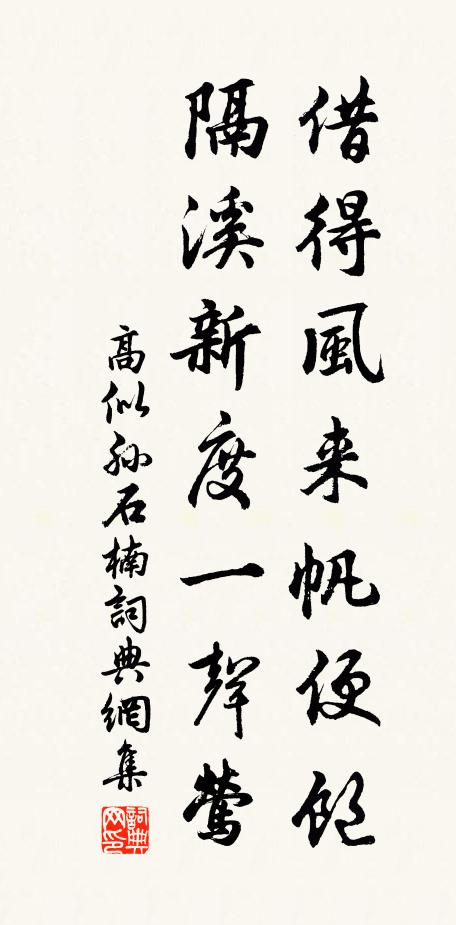 借得風来帆便飽
隔溪新度一聲鶯
高似孫石楠詞典網集
詞典網印